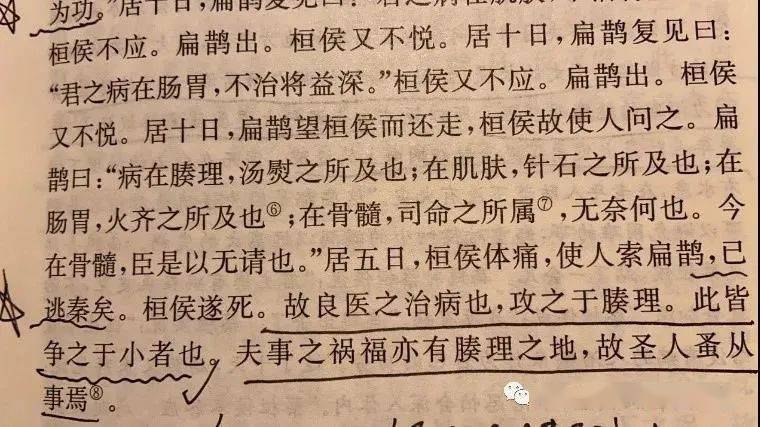 为功。”居十日，扁鹊复见曰：“君之病在肌肤，不治将益深。”
桓侯不应。扁鹊出。桓侯又不悦。居十日，扁鹊复见曰：
“君之病在肠胃，不治将益深。”桓侯又不应。扁鹊出。桓侯
又不悦。居十日，扁鹊望桓侯而还走，桓侯故使人问之。扁
鹊曰：“病在腠理，汤熨之所及也；在肌肤，针石之所及也；在
肠胃，火齐之所及也⑥；在骨髓，司命之所属⑦，无奈何也。今
在骨髓，臣是以无请也。”居五日，桓侯体痛，使人索扁鹊，已
逃秦矣。桓侯遂死。故良医之治病也，攻之于腠理。此皆
争之于小者也。夫事之祸福亦有腠理之地，故圣人蚤从
事焉⑧。